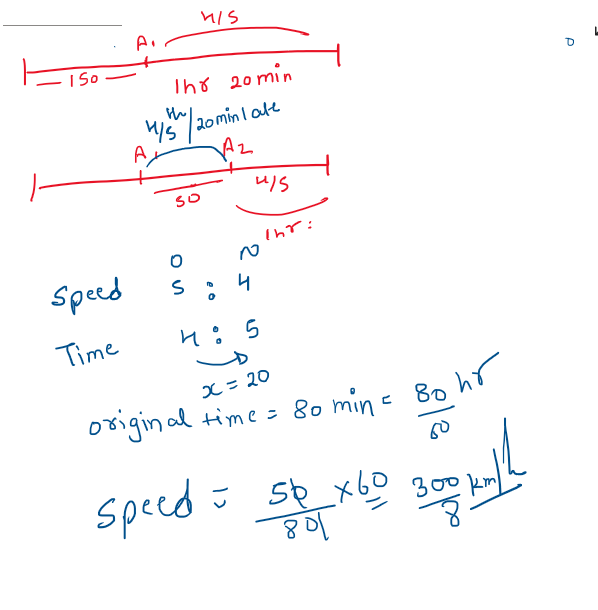 4/5
A1
150
1hr 20min
4/5 th / 20min late
A1 A2
50 4/5
1hr:
O N
Speed 5 : 4
Time 4 : 5
x = 20
original time = 80 min = 80/60 hr
Speed = 50/80 × 60 300/8 km/h